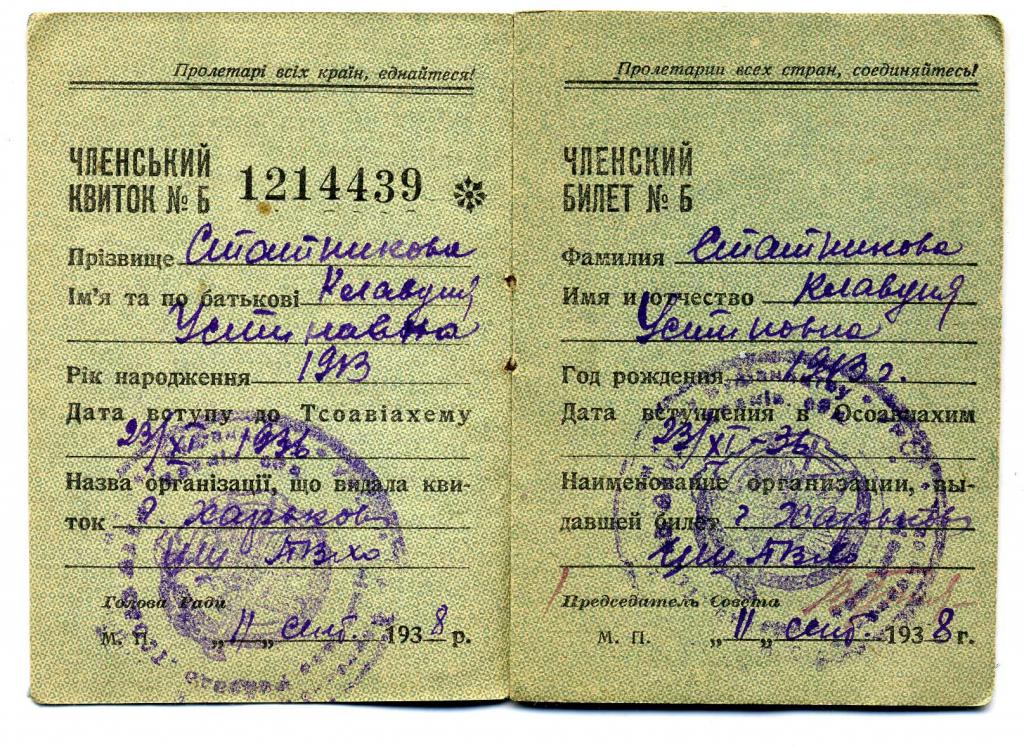 Пролетарі всіх країн, еднайтеся!
ЧЛЕНСЬКИЙ
КВИТОК № Б 1214439
Прізвище Статникова
Ім'я та по батькові Клавдия
Устиновна
Рік народження 1913
Дата вступу до Тсоавіахему
23/XI 1936
Назва організації, що видала кви-
ток г. Харьков
ПВХО
Голова Ради
М. П. „11„ сент. 1938 р.
Пролетарии всех стран, соединяйтесь!
ЧЛЕНСКИЙ
БИЛЕТ № Б
Фамилия Статникова
Имя и отчество Клавдия
Устиновна
Год рождения 1913 г.
Дата вступления в Осоавиахим
23/XI-36
Наименование организации, вы-
давшей билет г Харьков
ПВХО
Председатель Совета
М. П. „11„ сент. 1938 г.